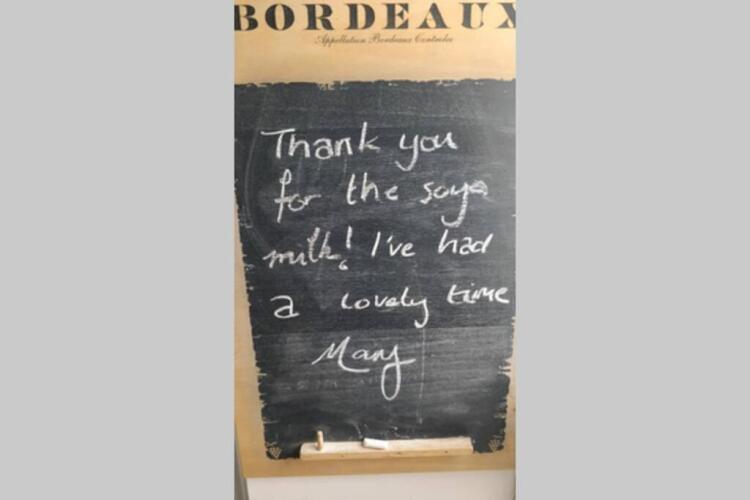 BORDEAUX
Appellation Bordeaux Controlée
Thank you
for the soya
milk! I've had
a lovely time
Mary